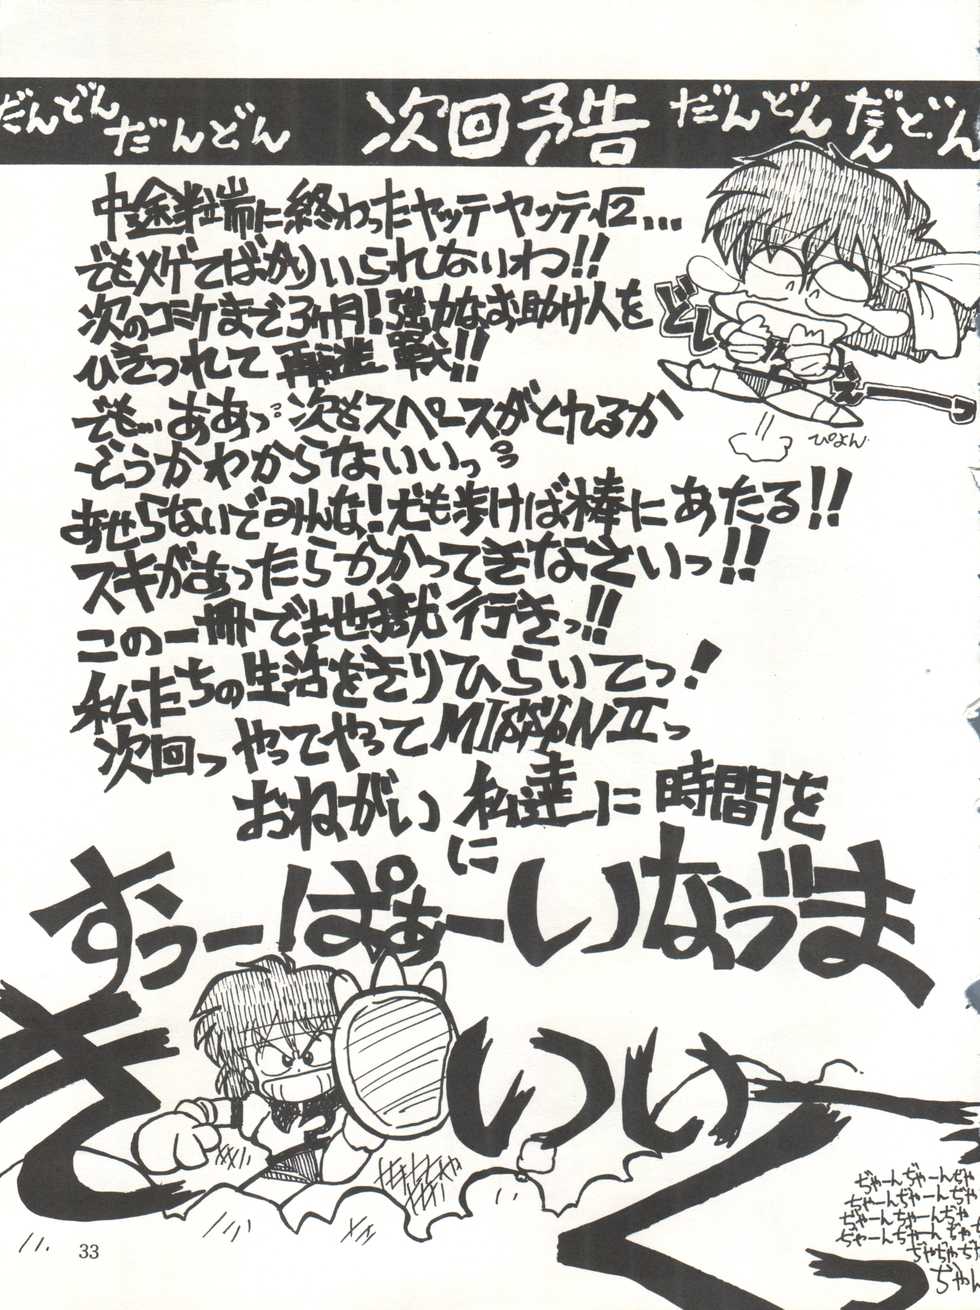 だんどん だんどん 次回予告 だんどん だんどん
中途半端に終わったヤッテヤッテ√2...
でもメゲてばっかりいられないわ!!
次のコミケまで3ヶ月!強力なお助け人を
ひきつれて再挑戦!!
でも…ああっ…次もスペースがとれるか
どうかわからないいっ
あせらないでみんな!犬も歩けば棒にあたる!!
スキがあったらかかってきなさいっ!!
この一冊で地獄行きっ!!
私たちの生活をきりひらいてっ!
次回っ やってやってMISSION IIっ
おねがい 私達に時間を
に
すうーぱぁーいなづま
きいいくっ
どしぇ
ぴよん
ぢゃーんぢゃーんぢゃ
ぢゃーんぢゃーんぢゃ
ぢゃーんぢゃーんぢゃ
ぢゃーんぢゃーん
ぢゃぢゃぢゃ
ぢゃん
33